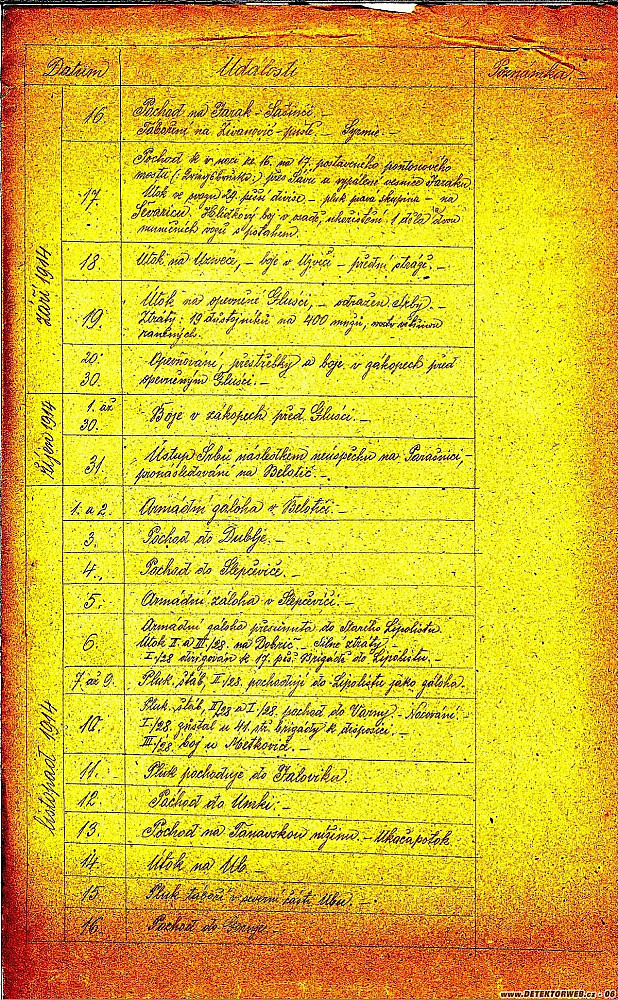 Datum Události Poznámka.
září 1914
16. Pochod na Jarak - Šašinci. -
Táboření na Živanović-pusté. Syrmie. -
17. Pochod k v noci ze 16. na 17. postaveného pontonového
mostu přes Sávu a vypálené vesnice Jaraku.
Útok ve svazu 29. pěší divise. - pluk para skupina - na
boj v osadě, ukořistění 1 děla dvou
muničních vozů s potahem.
18. Útok na Uzveće, - boje v Uzvići - přední stráže. -
19. Útok na opevněné Glušci, - odražen Srby. -
Ztráty: 19 důstojníků na 400 mužů, většinou
raněných.
20. 30. Opevňování, přestřelky a boje v zákopech před
opevněným Glušci. -
říjen 1914
1. až 30. Boje v zákopech před Glušci. -
31. Ústup Srbů následkem neúspěchu na Parašnici, -
pronásledování na Belotić. -
listopad 1914
1. a 2. Armádní záloha v Belotići. -
3. Pochod do Dublje. -
4. Pochod do Slepčeviće. -
5. Armádní záloha v Slepčevići. -
6. Armádní záloha přesunuta do Starého Lipolistu.
Útok II. a III./28. na Dobrić. - Silné ztráty. -
I./28 dirigován k 17. pěš. Brigádě do Lipolistu. -
7. až 9. Pluk. štáb, II./28. pochodují do Lipolistu jako záloha.
10. Pluk. štáb, II/28 a I./28. pochod do Varny. - Nocování. -
I./28. zůstal u 41. brigády k disposici. -
III/28. boj u Metkovića. -
11. Pluk pochoduje do Jalovíku.
12. Pochod do Umke. -
13. Pochod na Tanavskou nížinu. - Ukača potok
14. Útok na Ub. -
15. Pluk táboří v severní části Ubu. -
16. Pochod do
www.DETEKTORWEB.cz - 06